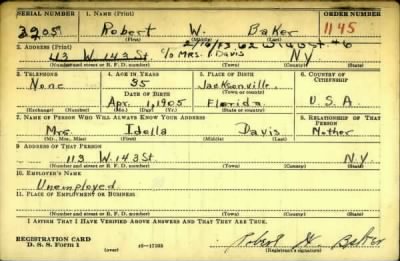 SERIAL NUMBER 1. NAME (Print) ORDER NUMBER
3205 Robert W. Baker 1145
(First) (Middle) (Last)
2. ADDRESS (Print)
113 W 143 St. c/o MRS. I. DAVIS N.Y
(Number and street or R. F. D. number) (Town) (County) (State)
3. TELEPHONE 4. AGE IN YEARS 5. PLACE OF BIRTH 6. COUNTRY OF CITIZENSHIP
None 35 Jacksonville
DATE OF BIRTH (Town or county)
Apr. 1 1905 Florida U.S.A
(Exchange) (Number) (Mo.) (Day) (Yr.) (State or country)
7. NAME OF PERSON WHO WILL ALWAYS KNOW YOUR ADDRESS 8. RELATIONSHIP OF THAT PERSON
Mrs. Idella Davis Mother
(Mr., Mrs., Miss) (First) (Middle) (Last)
9. ADDRESS OF THAT PERSON
113 W. 143 St. N.Y.
(Number and street or R. F. D. number) (Town) (County) (State)
10. EMPLOYER'S NAME
Unemployed
11. PLACE OF EMPLOYMENT OR BUSINESS
(Number and street or R. F. D. number) (Town) (County) (State)
I AFFIRM THAT I HAVE VERIFIED ABOVE ANSWERS AND THAT THEY ARE TRUE.
REGISTRATION CARD
D. S. S. Form 1 (over) 16-17105 Robert W. Baker
(Registrant's signature)